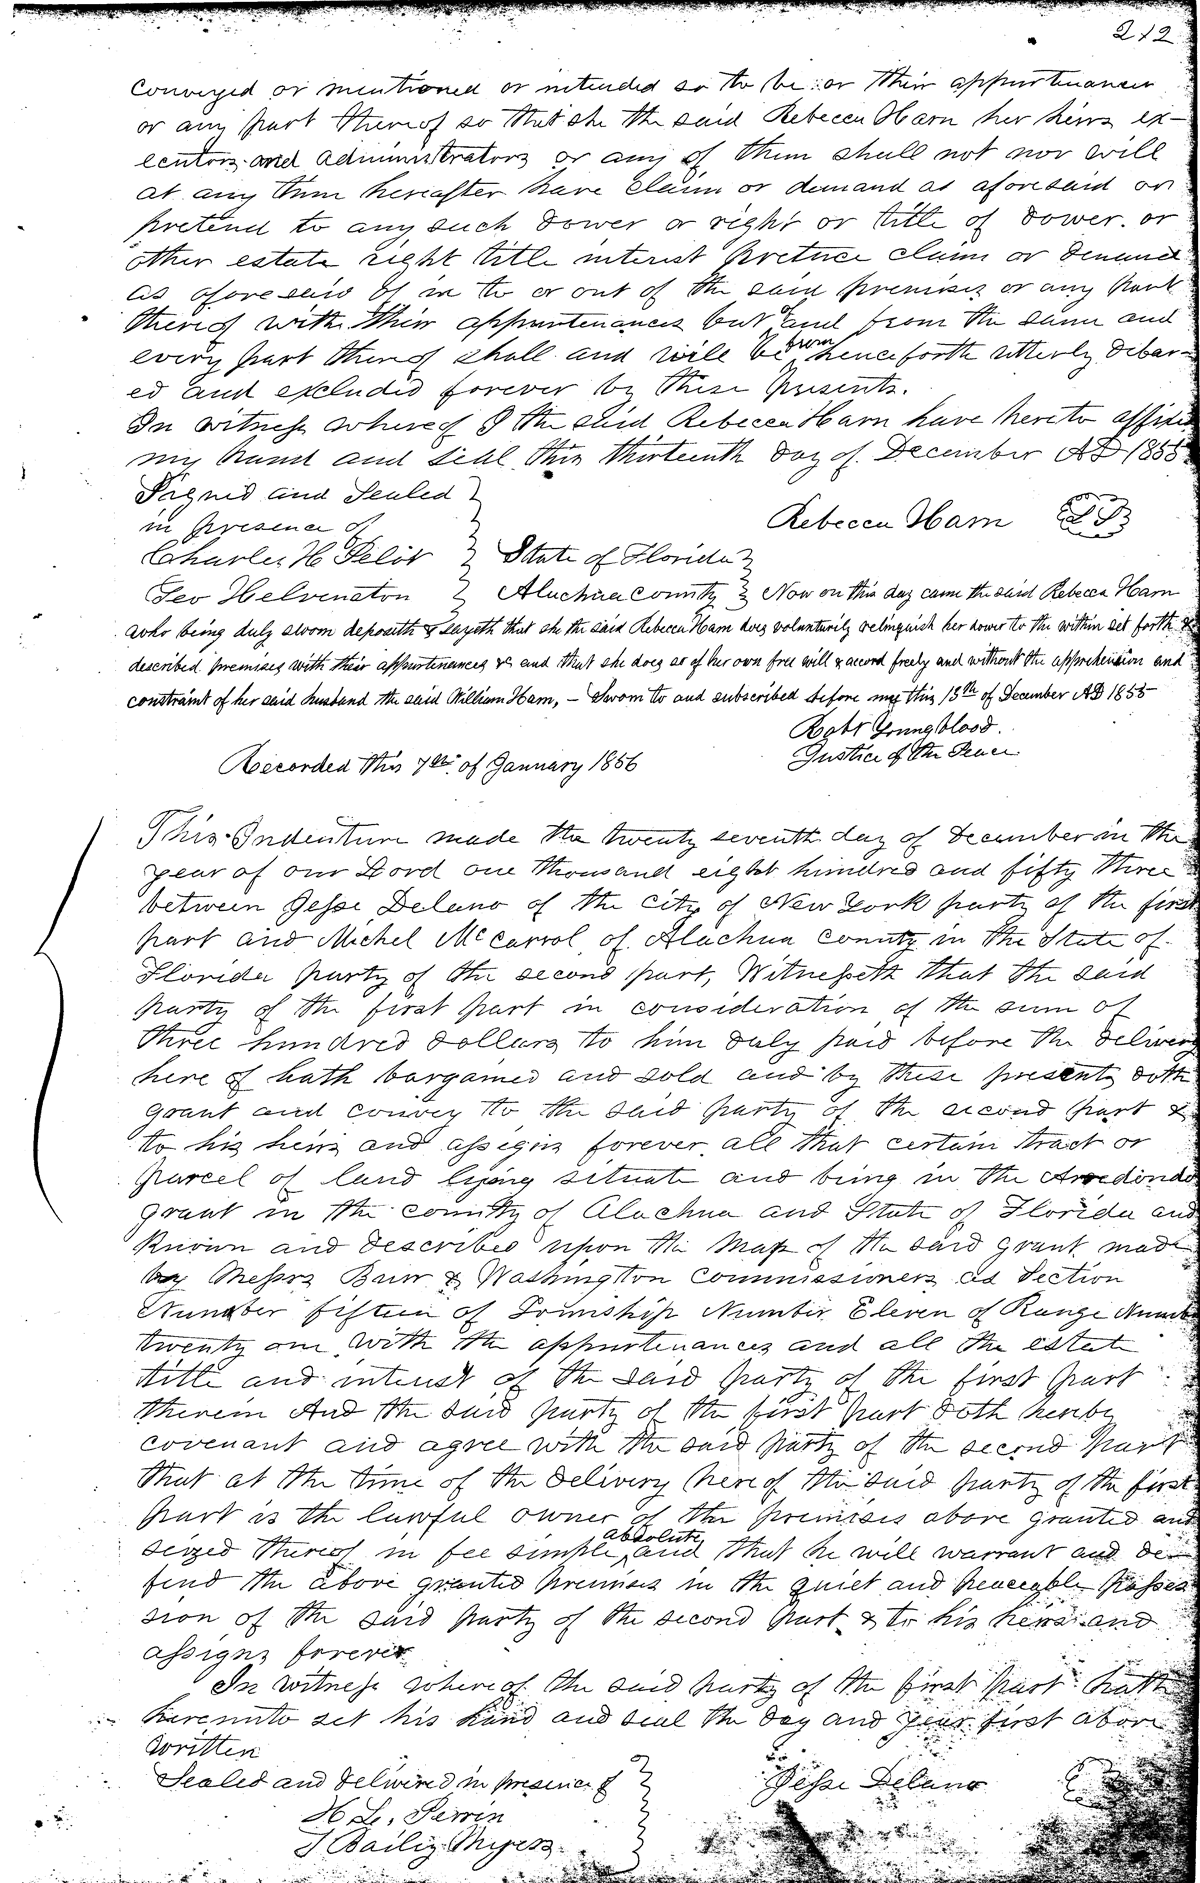 212
conveyed or mentioned or intended so to be or their appurtenances
or any part thereof so that she the said Rebecca Ham her heirs ex-
ecutors and administrators or any of them shall not nor will
at any time hereafter have claim or demand as aforesaid or
pretend to any such dower or right or title of dower. or
other estate right title interest pretence claim or demand
as aforesaid of in to or out of the said premises or any part
thereof with their appurtenances but of and from the same and
every part thereof shall and will be from henceforth utterly debar-
ed and excluded forever by these presents.
In witness whereof I the said Rebecca Ham have hereto affixed
my hand and seal this thirteenth day of December AD 1855
Signed and Sealed
in presence of
Rebecca Ham LS
Charles H Pelot State of Florida
Geo Helvenston Alachua County Now on this day came the said Rebecca Ham
who being duly sworn deposeth & sayeth that she the said Rebecca Ham does voluntarily relinquish her dower to the within set forth &
described premises with their appurtenances &c and that she does so of her own free will & accord freely and without the apprehension and
constraint of her said husband the said William Ham, - Sworn to and subscribed before me this 13th of December AD 1855
Robt Youngblood.
Justice of the Peace
Recorded this 7th of January 1856
This Indenture made the twenty seventh day of December in the
year of our Lord one thousand eight hundred and fifty three
between Jesse Delano of the city of New York party of the first
part and Michel McCarrol of Alachua county in the State of
Florida party of the second part, Witnesseth that the said
party of the first part in consideration of the sum of
three hundred dollars to him duly paid before the delivery
here of hath bargained and sold and by these presents doth
grant and convey to the said party of the second part &
to his heirs and assigns forever all that certain tract or
parcel of land lying situate and being in the Arredondo
grant in the county of Alachua and State of Florida and
known and described upon the map of the said grant made
by Messrs Burr & Washington commissioners as Section
Number fifteen of Township Number Eleven of Range Number
twenty one with the appurtenances and all the estate
title and interest of the said party of the first part
therein And the said party of the first part doth hereby
covenant and agree with the said party of the second part
that at the time of the delivery here of the said party of the first
part is the lawful owner of the premises above granted and
seized thereof in fee simple absolute and that he will warrant and de-
fend the above granted premises in the quiet and peaceable posses
sion of the said party of the second part & to his heirs and
assigns forever
In witness whereof the said party of the first part hath
hereunto set his hand and seal the day and year first above
written
Sealed and delivered in presence of Jesse Delano
H. L. Perrin
T Bailey Myers